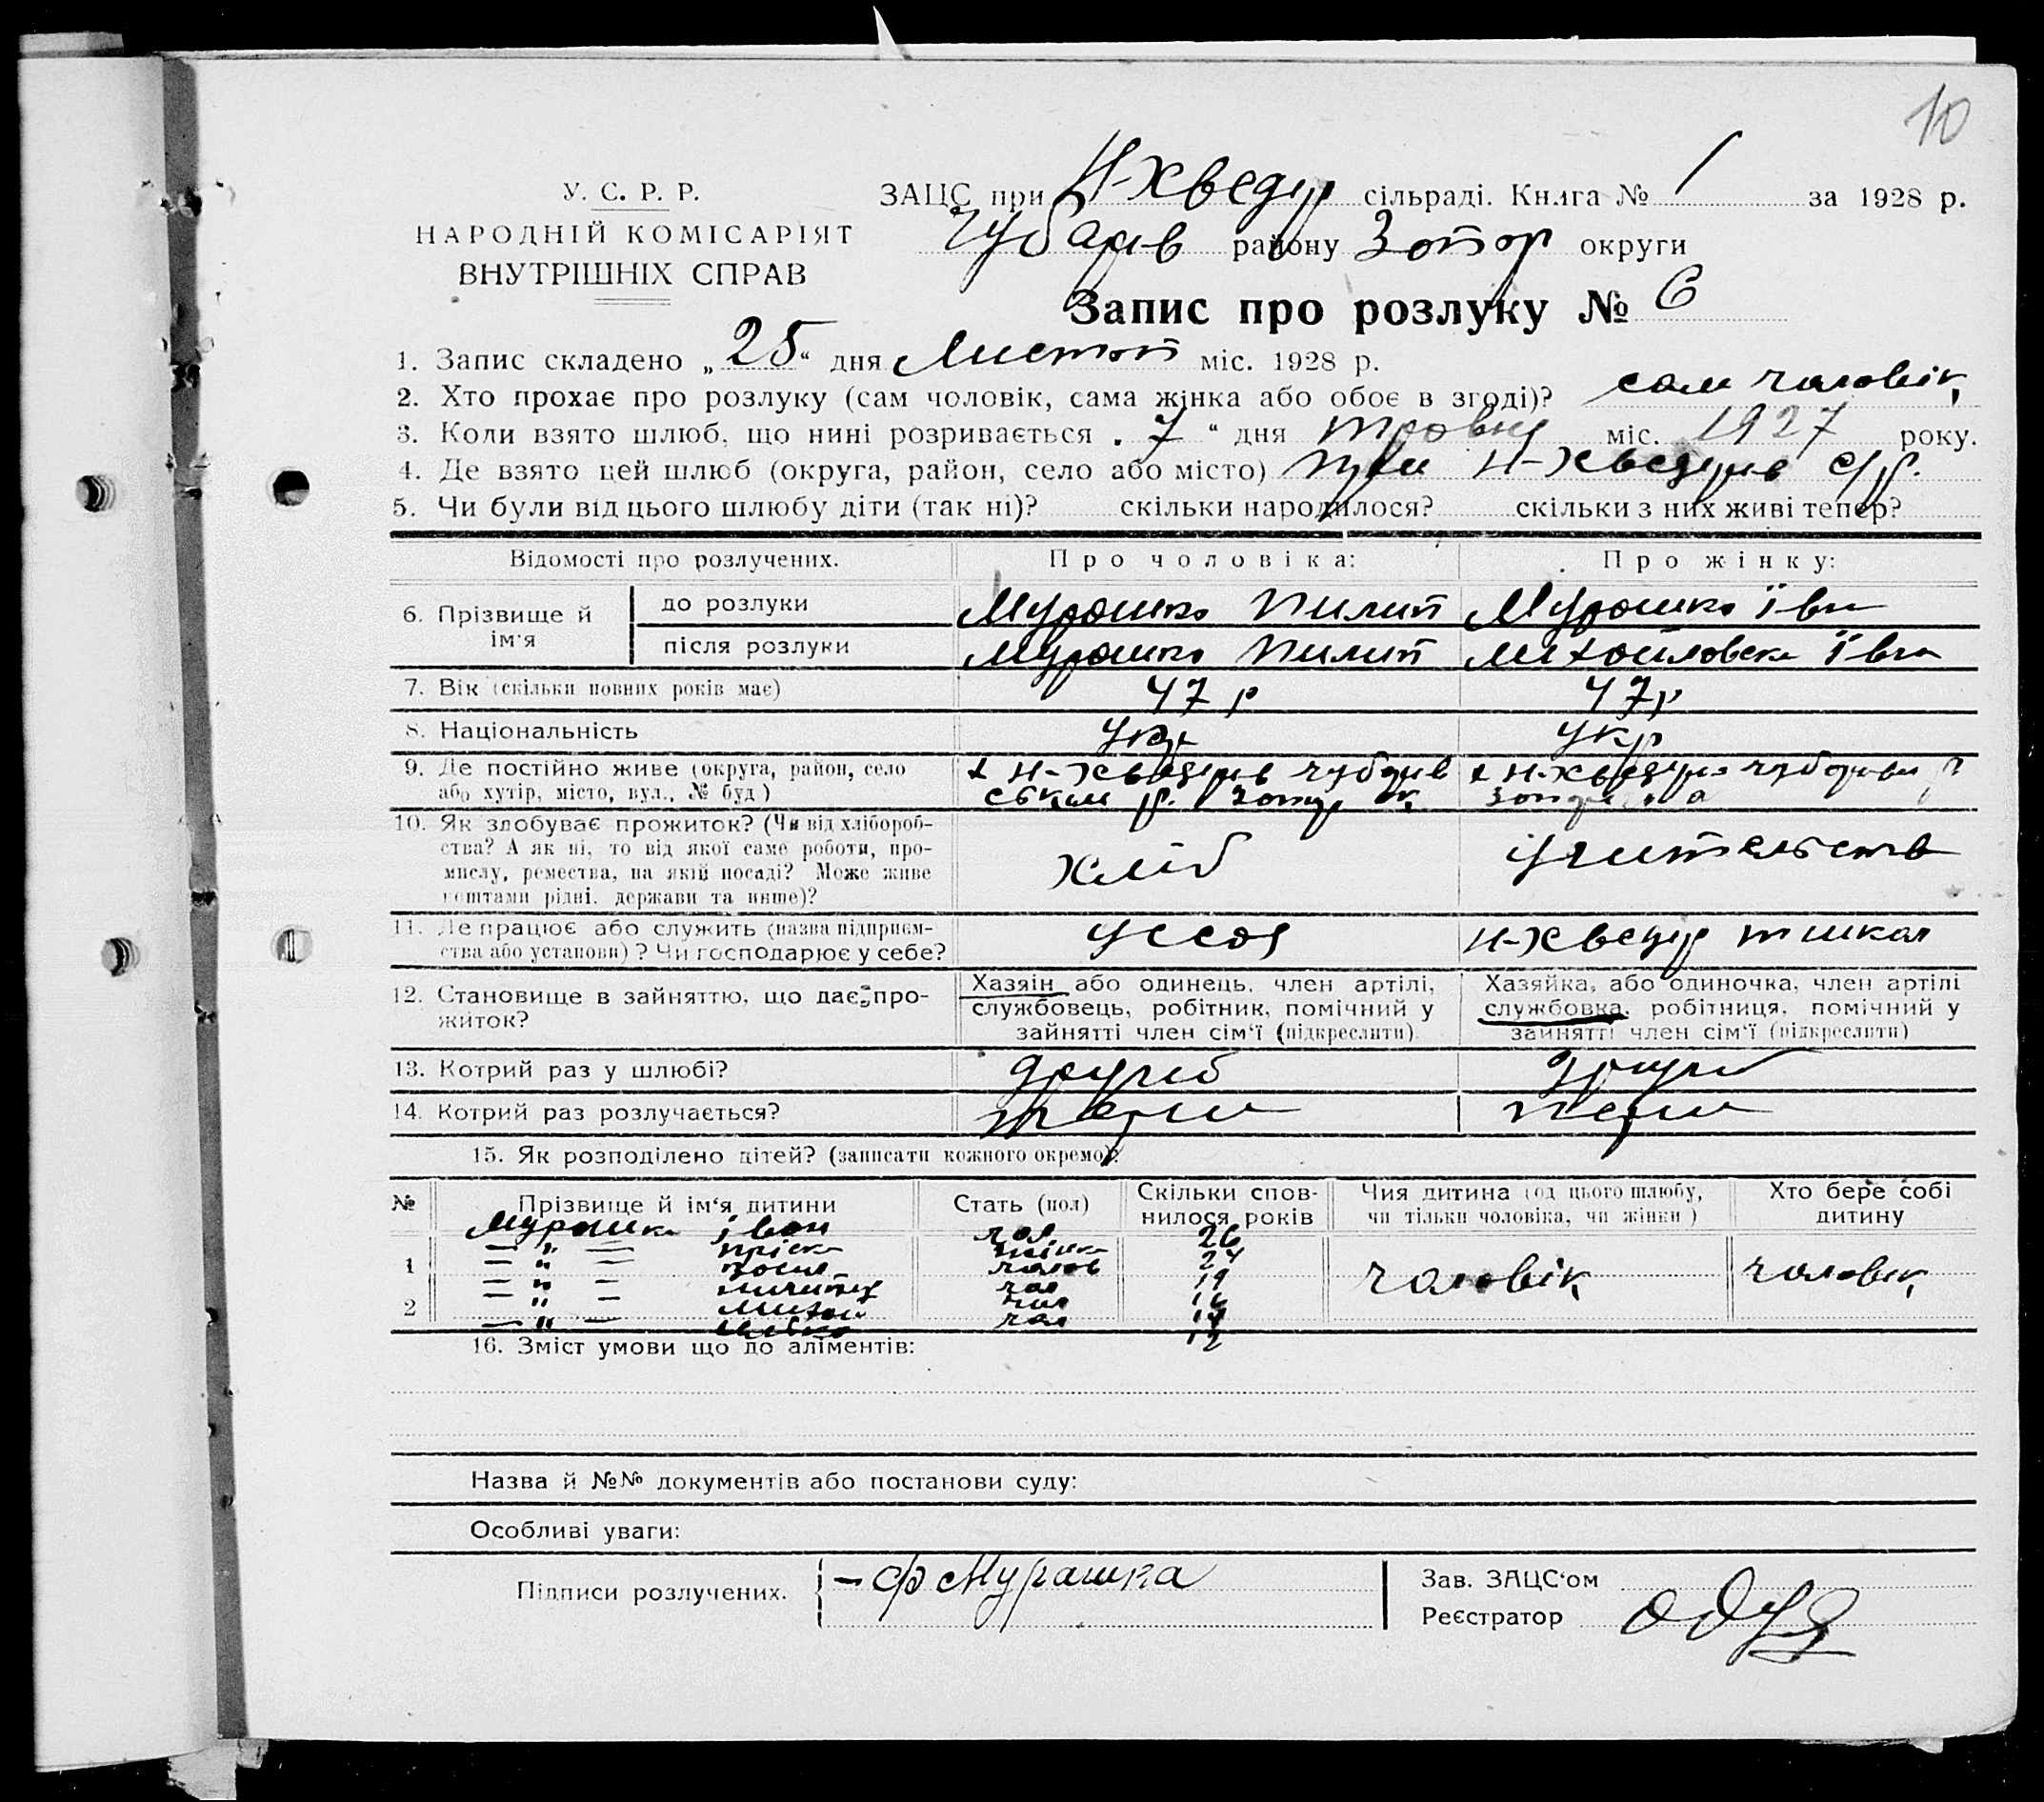 10
У. С. Р. Р.
НАРОДНІЙ КОМІСАРІЯТ
ВНУТРІШНІХ СПРАВ
ЗАЦС при Н-Хведур сільраді. Книга № 1 за 1928 р.
Чубарів району Запор округи
Запис про розлуку № 6
1. Запис складено „25“ дня Листоп міс. 1928 р.
2. Хто прохає про розлуку (сам чоловік, сама жінка або обоє в згоді)? сам чоловік
3. Коли взято шлюб, що нині розривається „7“ дня травня міс. 1927 року.
4. Де взято цей шлюб (округа, район, село або місто) при Н-Хведурів с/р.
5. Чи були від цього шлюбу діти (так ні)? скільки народилося? скільки з них живі тепер?
Відомості про розлучених. Про чоловіка: Про жінку:
6. Прізвище й ім'я до розлуки Мурашко Пилип Мурашко Івга
після розлуки Мурашко Пилип Михайловська Івга
7. Вік (скільки повних років має) 47 р 47р
8. Національність Укр Укр
9. Де постійно живе (округа, район, село
або хутір, місто, вул., № буд)
10. Як здобуває прожиток? (Чи від хлібороб-
ства? А як ні, то від якої саме роботи, про-
мислу, ремества, на якій посаді? Може живе
коштами рідні, держави та инше)? хліб учительств
11. Де працює або служить (назва підприєм-
ства або установи)? Чи господарює у себе? у себя Н-Хведур т школ
12. Становище в зайняттю, що дає про-
житок?
Хазяїн або одинець, член артілі,
службовець, робітник, помічний у
зайнятті член сім'ї (підкреслити)
Хазяйка, або одиночка, член артілі
службовка, робітниця, помічний у
зайнятті член сім'ї (підкреслити)
13. Котрий раз у шлюбі? другий другий
14. Котрий раз розлучається? перш перш
15. Як розподілено дітей? (записати кожного окремо):
№ Прізвище й ім'я дитини Стать (пол) Скільки спов-
нилося років Чия дитина (од цього шлюбу,
чи тільки чоловіка, чи жінки) Хто бере собі
дитину
Мурашко Іван чол 26
1 — " — Пріська жінка 24
— " — чолов 19
— " — чол 16
2 — " — Михай чол 14
— " — чол 12
чоловік чоловік
16. Зміст умови що до аліментів:
Назва й №№ документів або постанови суду:
Особливі уваги:
Підписи розлучених. — Ф Мурашка
Зав. ЗАЦС'ом
Реєстратор